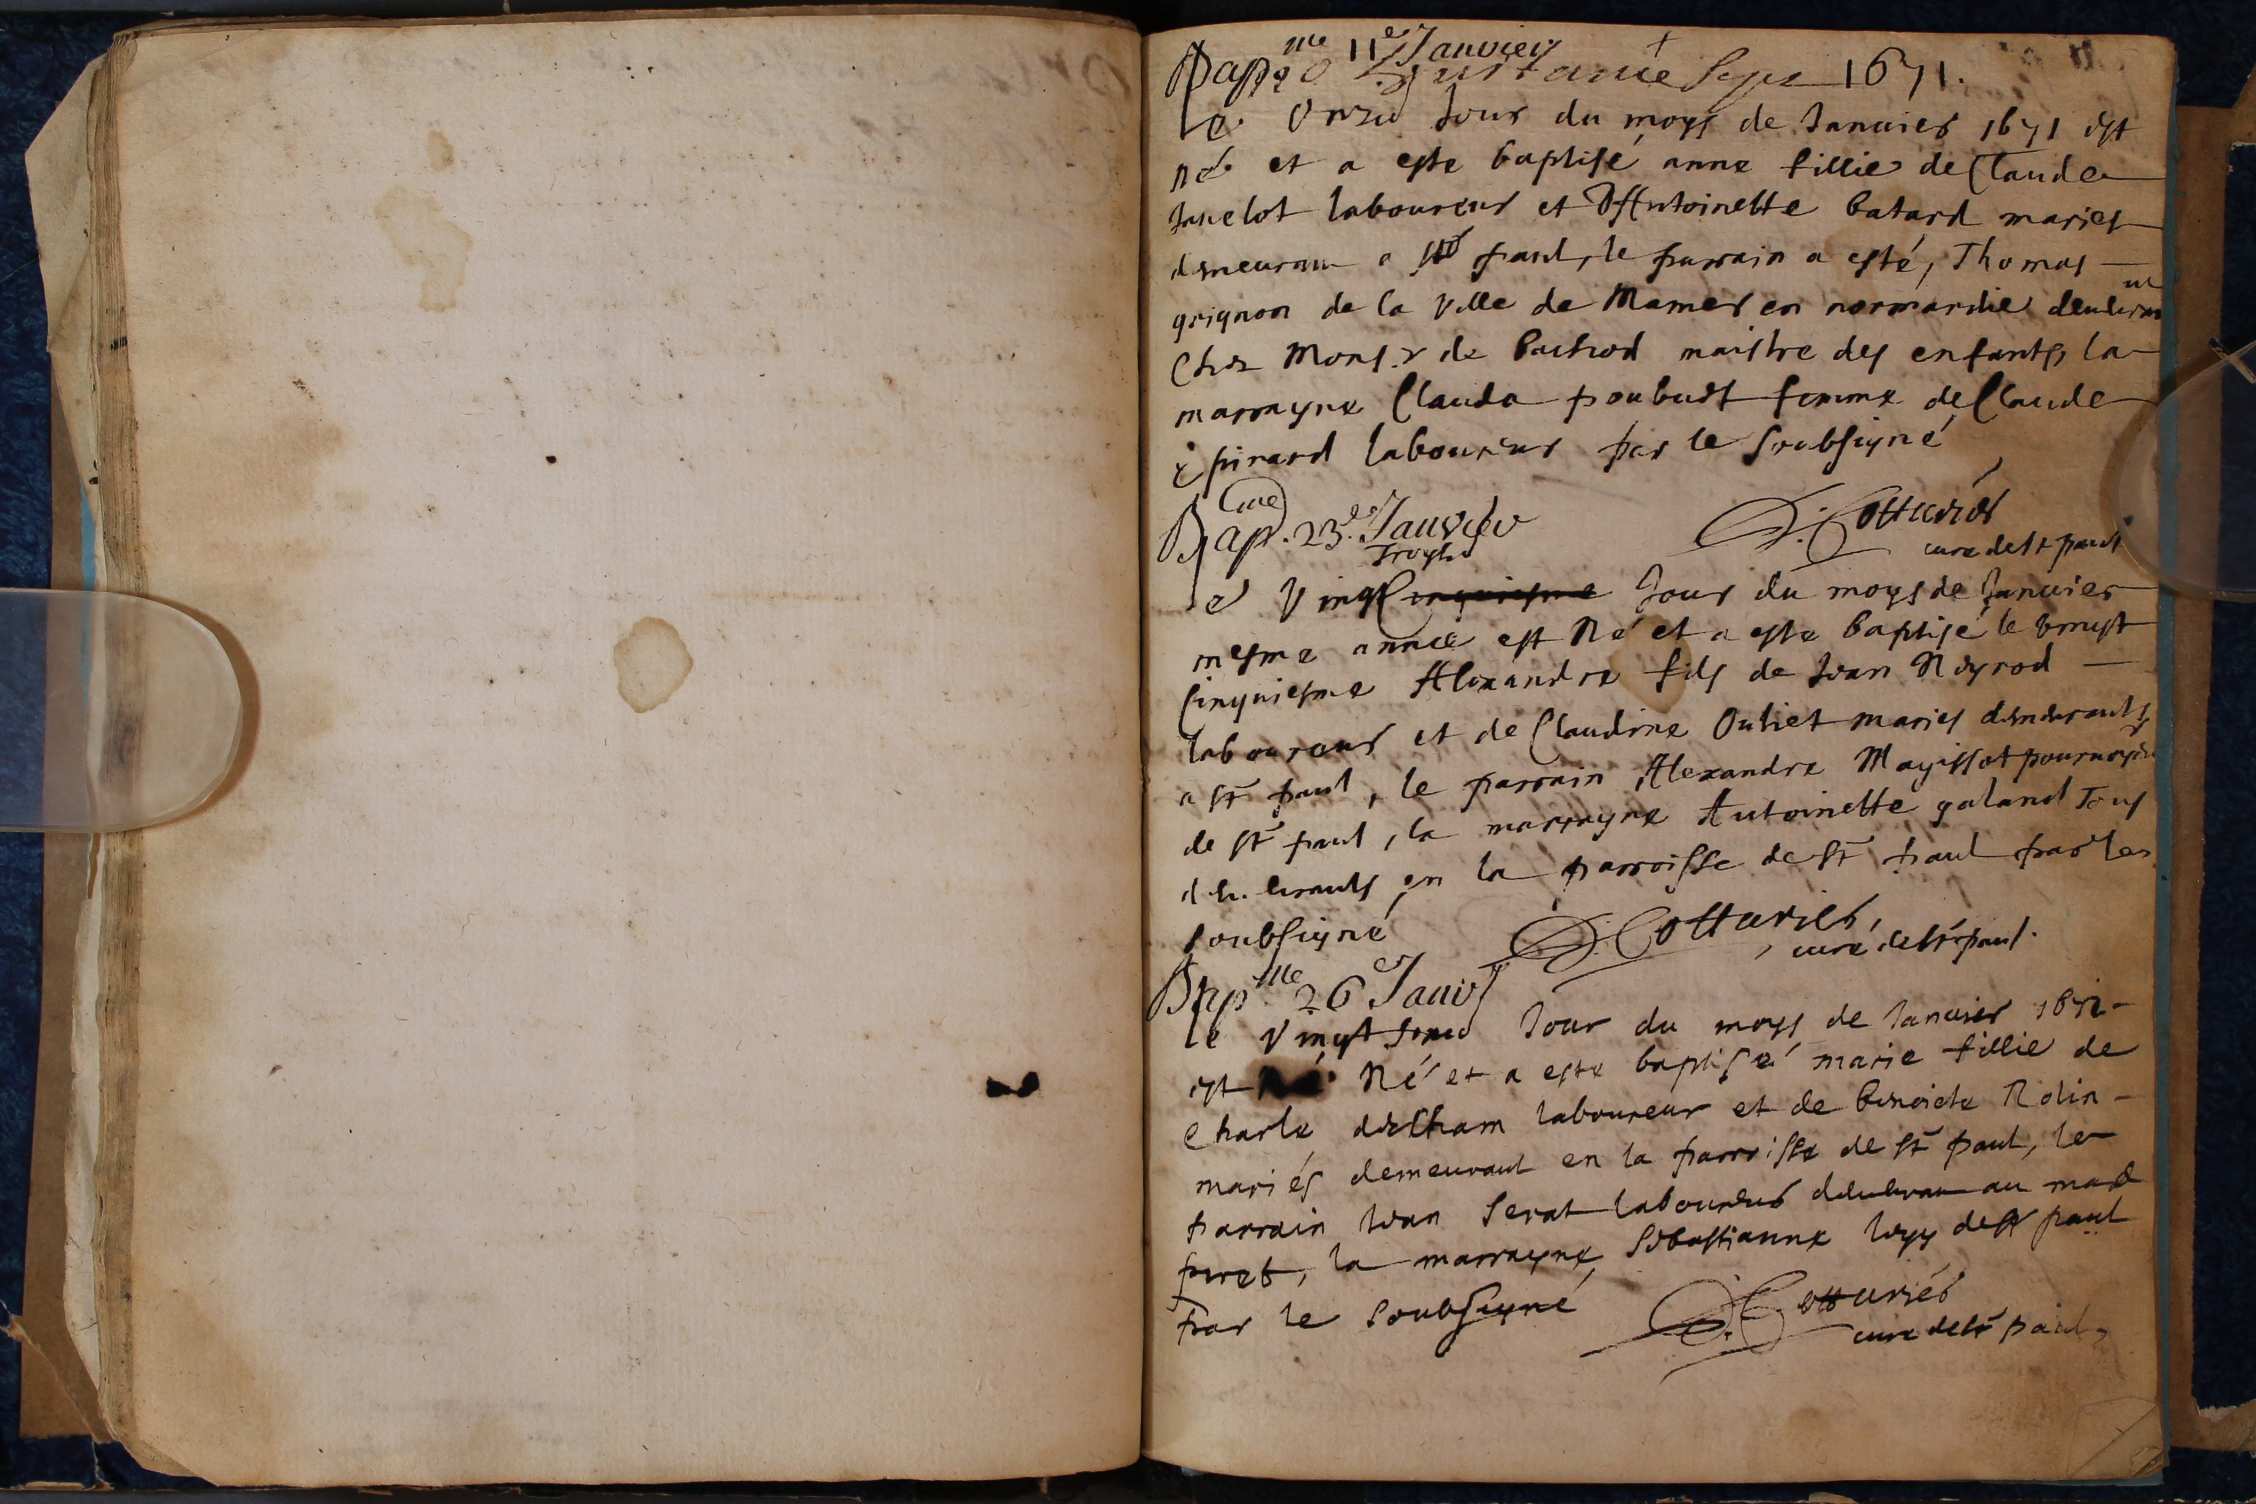 Bap me 11e Janvier
1671.
Le Onze Jour du moys de Januier 1671 est
né et a este baptisé anne fillie de Claude
Janelot laboureur et D'Antoinette batard maries
demeurant a st paul, le parrain a esté, Thomas
grignon de la Ville de Mamer en normandie
Chez Monsr de maistre des enfants, la
marrayne Clauda poubust femme de Claude
epinard laboureur par le soubsigné
Cotturier
cure de st paul
Bap. 23e Janvier
troysie
Le Vingt Cinquiesme Jour du moys de Januier
mesme année est Né et a este baptisé le vingt
Cinquiesme Alexandre fils de Jean Neyrod
laboureur et de Claudine Ouliet maries demeurants
a st paul, le parrain Alexandre Mayissot
de st paul, la marrayne Antoinette galand Tous
en la parroisse de st paul par le
soubsigné
Cotturier,
cure de st paul.
Bap lle 26e Janv
Le Vingt Jour du moys de Januier
est Né et a este baptisé marie fillie de
Charle laboureur et de benoiste Rolin
mariés demeurant en la parroisse de st paul, le
parrain Jean Serat laboureur au mas
la marrayne Sebastianne de st paul
par le soubsigné
Cotturier
cure de st paul